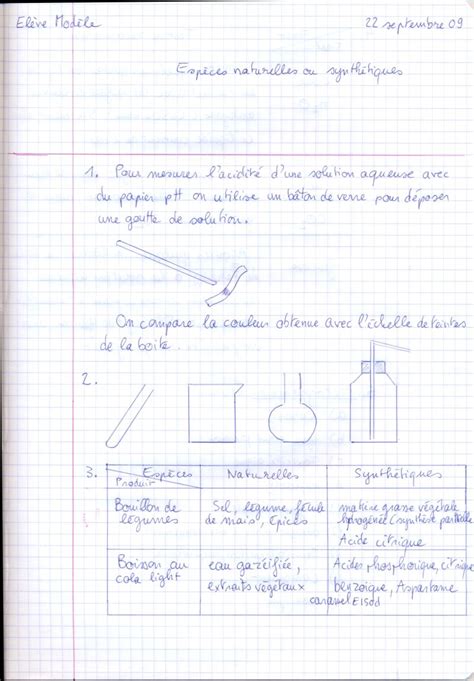 Elève Modèle 22 septembre 09
Espèces naturelles ou synthétiques
1. Pour mesurer l'acidité d'une solution aqueuse avec
du papier pH on utilise un bâton de verre pour déposer
une goutte de solution.
On compare la couleur obtenue avec l'échelle de teintes
de la boîte.
2.
3. Espèces Naturelles Synthétiques
Produit
Bouillon de légumes
Sel, légume, fécule
de maïs, Epices
matière grasse végétale
hydrogénée (synthèse partielle
Acide citrique
Boisson au
cola light
eau gazéifiée,
extraits végétaux
Acides phosphorique, citrique
benzoïque, Aspartame
caramel E150d